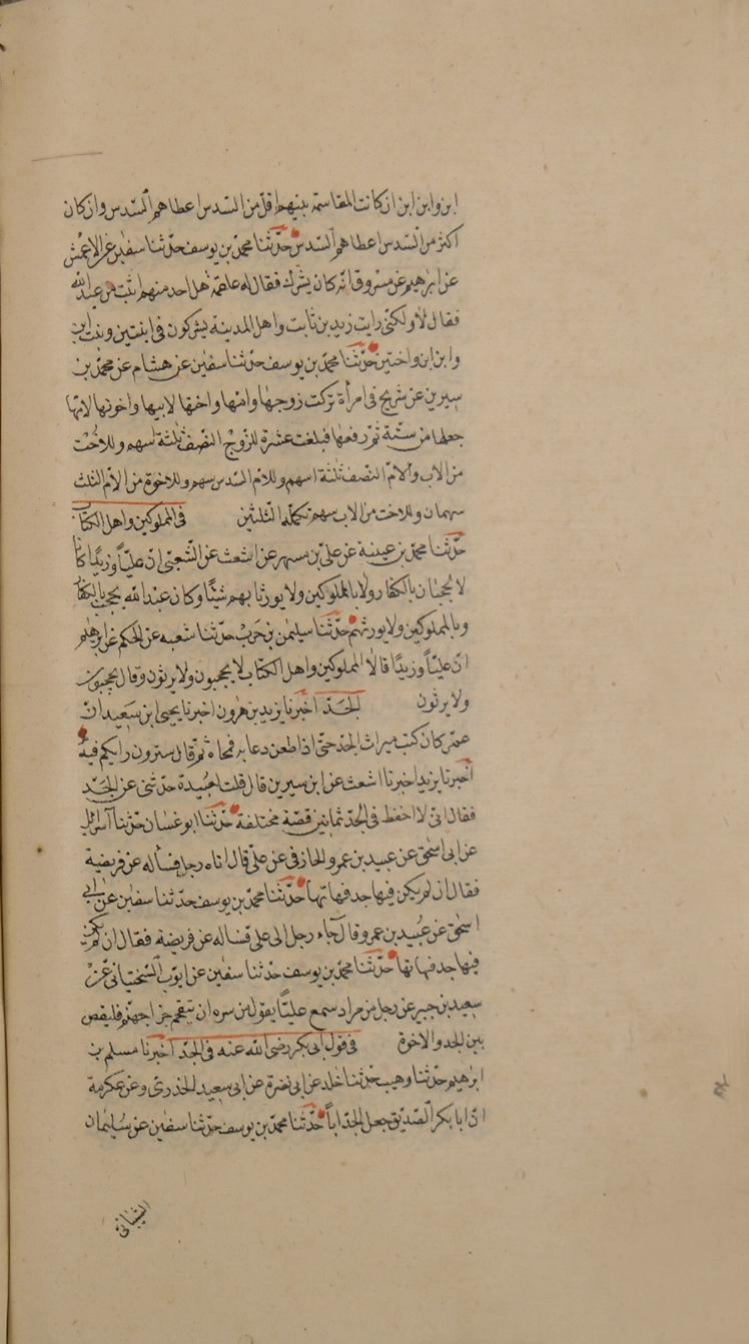 ابن وابن ابن ان كانت المقاسمة بينهم اقل من السدس اعطاهم السدس وان كان
اكثر من السدس اعطاهم السدس حدثنا محمد بن يوسف حدثنا سفين عن الاعمش
عن ابرهيم عن مسروق انه كان يشرك فقال له علقمة هل احد منهم اثبت من عبد الله
فقال لا ولكنى رايت زيد بن ثابت واهل المدينة يشركون فى ابنتين وبنت ابن
وابن ابن واختين حدثنا محمد بن يوسف حدثنا سفين عن هشام عن محمد بن
سيرين عن شريح فى امرأة تركت زوجها وامها واختها لابيها وامها واختها لابيها واخوتها لامها
جعلها من ستة ثم رفعها فبلغت عشرة للزوج النصف ثلثة اسهم وللاخت
من الاب والام النصف ثلثة اسهم وللام السدس سهم وللاخوة من الام الثلث
سهمان وللاخت من الاب سهم تكملة الثلثين فى المملوكين واهل الكتاب
حدثنا محمد بن عيينة عن على بن مسهر عن اشعث عن الشعبى ان عليا وزيدا كانا
لا يحجبان بالكفار ولا بالمملوكين ولا يورثانهم شيئا وكان عبد الله يحجب بالكفار
وبالمملوكين ولا يورثهم حدثنا سليمن بن حرب حدثنا شعبه عن الحكم عن ابرهيم
ان عليا وزيدا قالا المملوكين واهل الكتاب لا يحجبون ولا يرثون وقال يحجبون
ولا يرثون الجد اخبرنا يزيد بن هرون اخبرنا يحيى ابن سعيد ان
عمر كان كتب ميراث الجد حتى اذا طعن دعا به فمحاه ثم قال سترون رايكم فيه
اخبرنا يزيد اخبرنا اشعث عن ابن سيرين قال قلت لعبيدة حدثنى عن الجد
فقال انى لا احفظ فى الجد ثمانين قصة مختلفة حدثنا ابو غسان حدثنا اسرائيل
عن ابى اسحق عن عبيد بن عمرو الخارفى عن على قال اتاه رجل فسأله عن فريضة
فقال ان لم يكن فيها جد فهاتها حدثنا محمد بن يوسف حدثنا سفين عن ابى
اسحق عن عبيد بن عمرو قال جاء رجل الى على فساله عن فريضة فقال ان لم يكن
فيها جد فهاتها حدثنا محمد بن يوسف حدثنا سفين عن ايوب السختيانى عن
سعيد بن جبير عن رجل من مراد سمع عليا يقول من سره ان يتقحم جراثيم جهنم فليقض
بين الجد والاخوة فى قول ابى بكر رضى الله عنه فى الجد اخبرنا مسلم بن
ابرهيم حدثنا وهيب حدثنا خلد عن ابى نضرة عن ابى سعيد الخدرى وعن عكرمة
ان ابا بكر الصديق جعل الجد ابا حدثنا محمد بن يوسف حدثنا سفين عن سليمان
الشيبانى